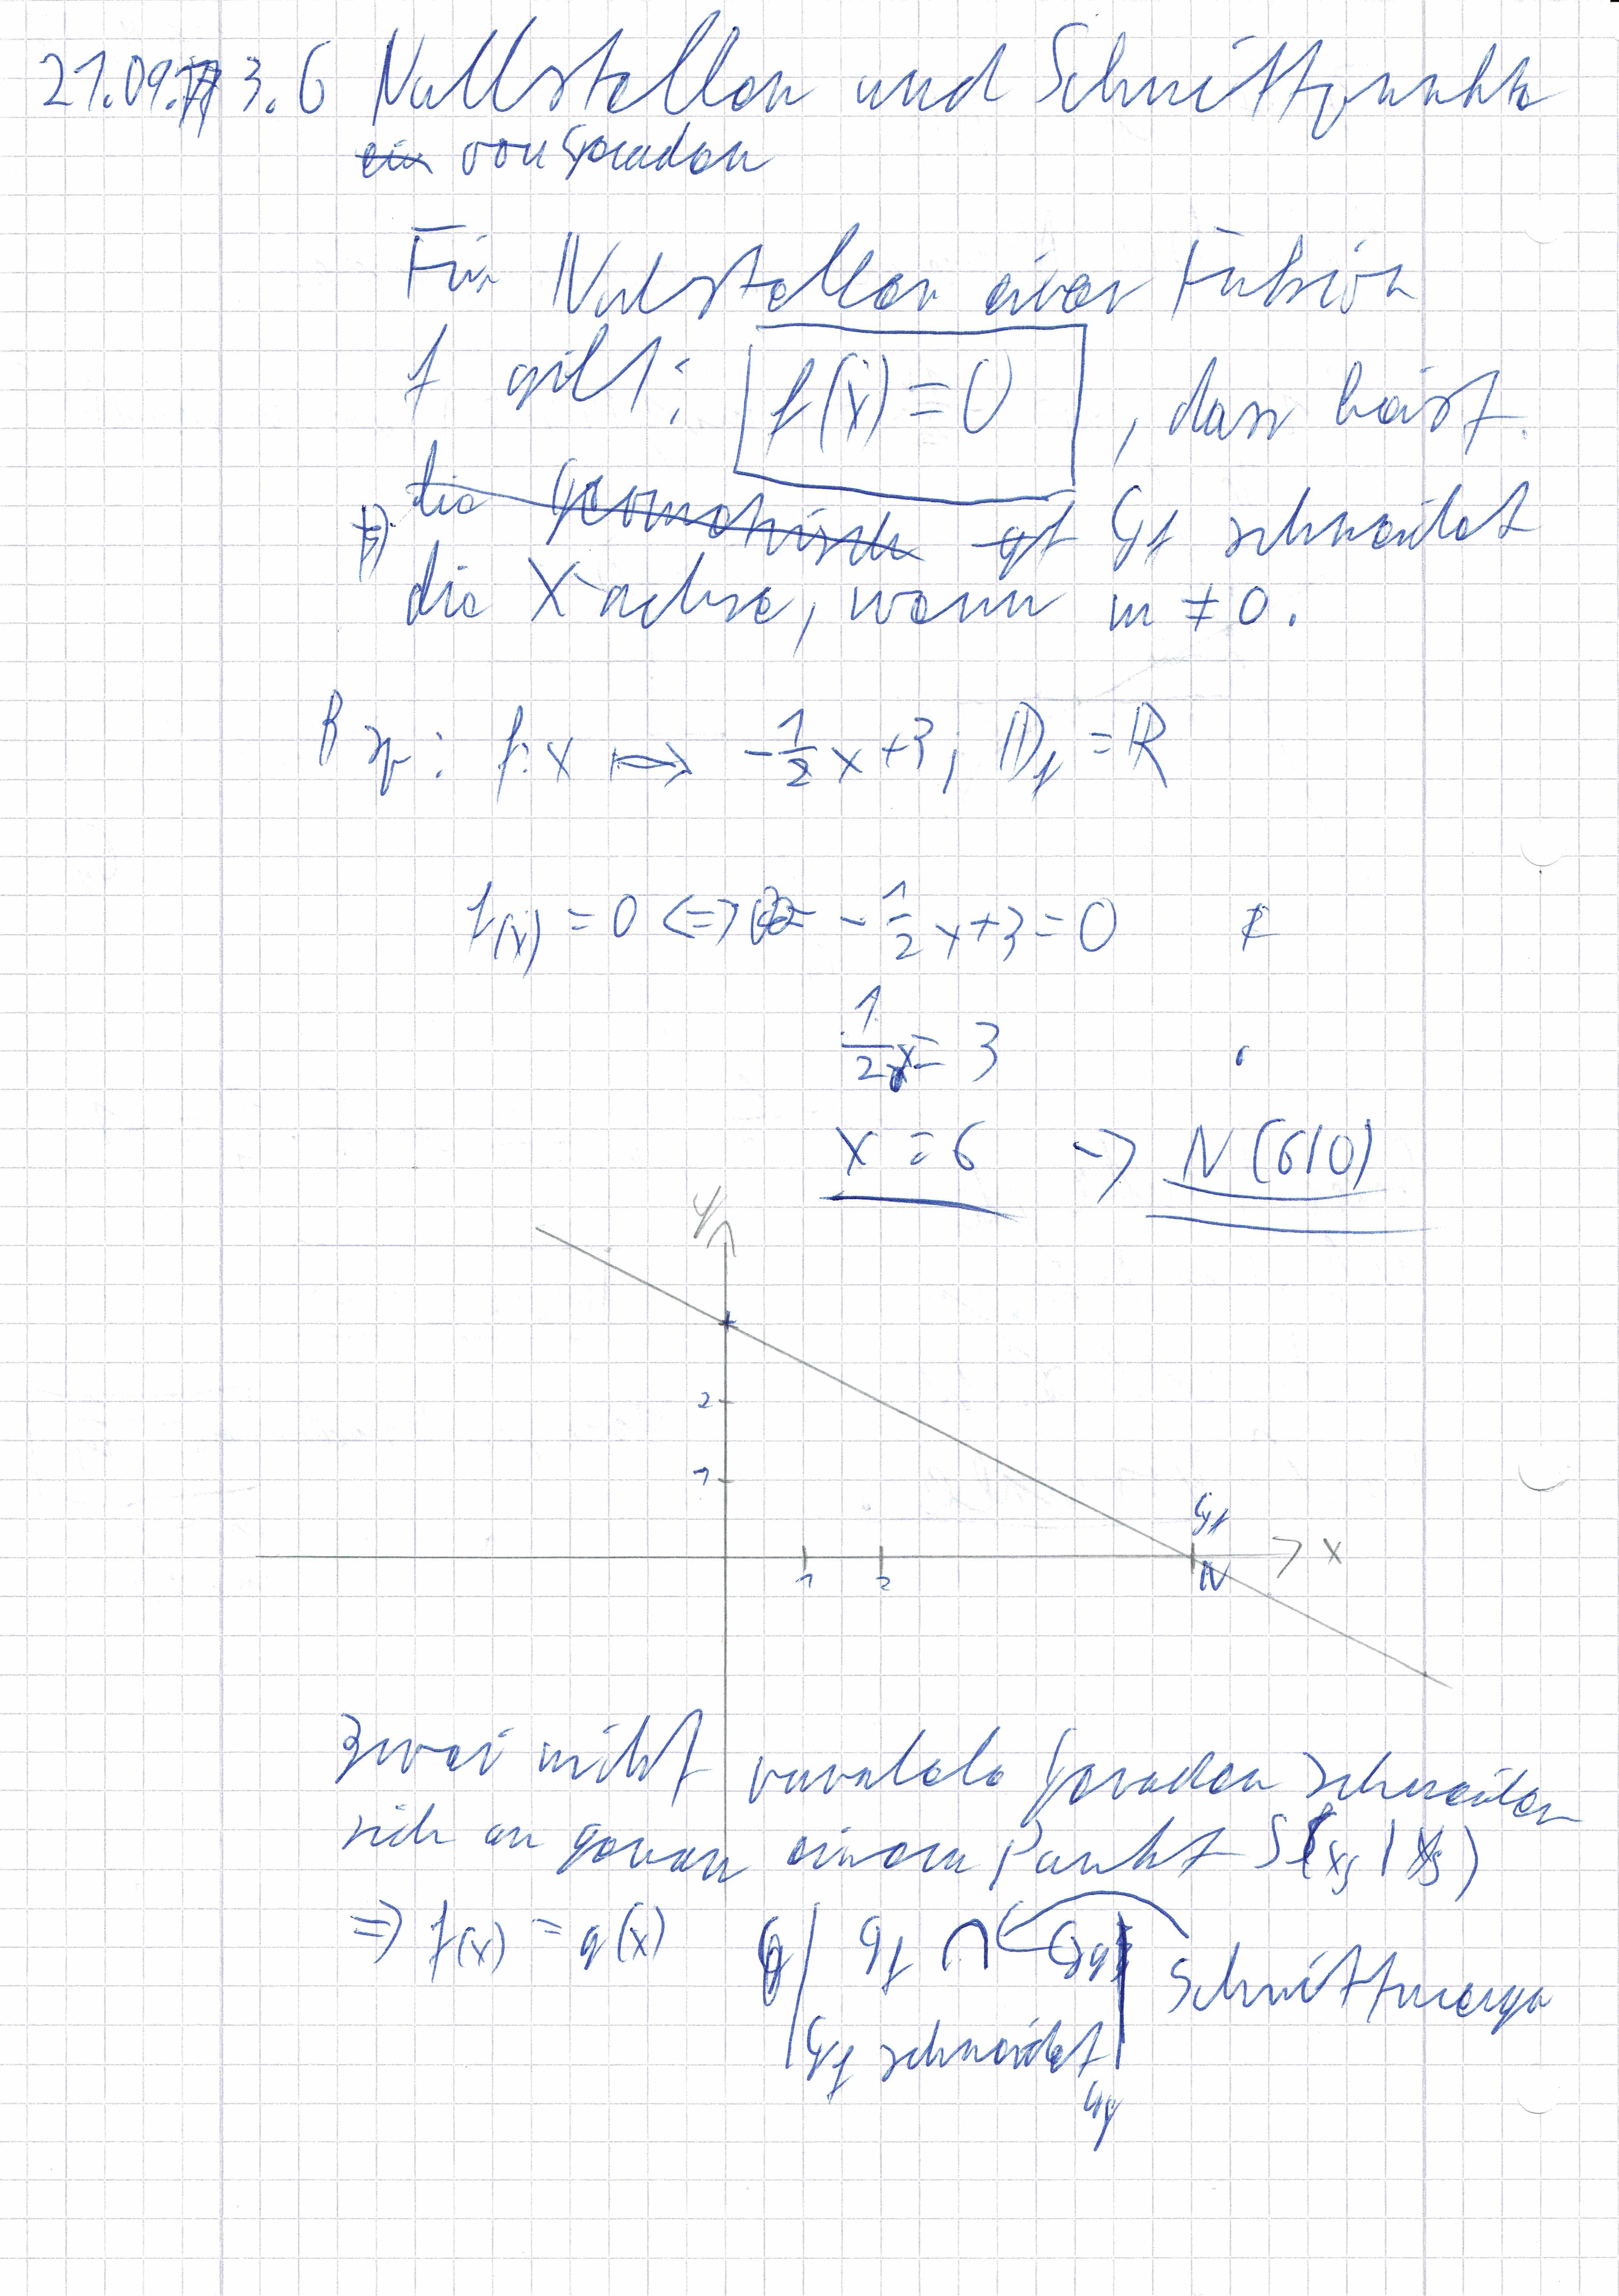 21.09.17 3.6 Nullstellen und Schnittpunkte
ein von Geraden
Für Nulstellen einer Funktion
f gilt: f(x) = 0 , dass heist
die geometrisch Gf schneidet
die X-achse, wenn m ≠ 0.
Bsp: f: x ↦ -1/2 x + 3; Df = ℝ
f(x) = 0 <=> -1/2 x + 3 = 0
1/2 x = 3
x = 6 -> N (6|0)
y
2
1
Gf
x
1 2 N
zwei nicht paralele Geraden schneiden
sich an genau einem Punkt S(xs | ys)
=> f(x) = g(x) Gf ∩ Gg Schnittmenge
Gf schneidet
Gg